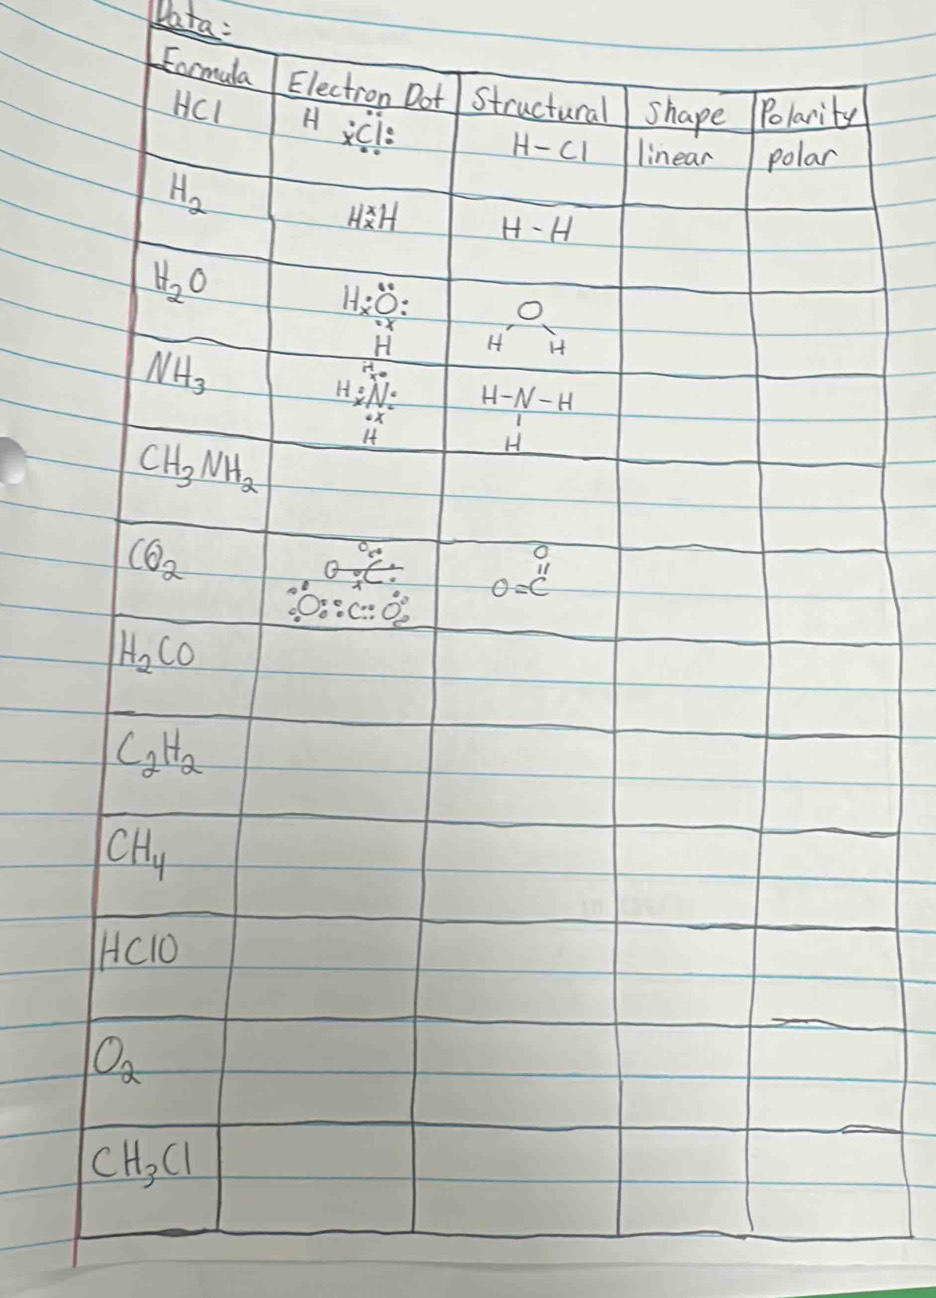 Data:
Formula Electron Dot Structural Shape Polarity
HCl H ẋCl: H-Cl linear polar
H₂ HẋxH H-H
H₂O H:ẋÖ: O
·x
H H H
NH₃ H
H:ẋN: H-N-H
·x
H H
CH₃NH₂
CO₂ O
O C: O=C
O
:O::C::O:
H₂CO
C₂H₂
CH₄
HClO
O₂
CH₃Cl